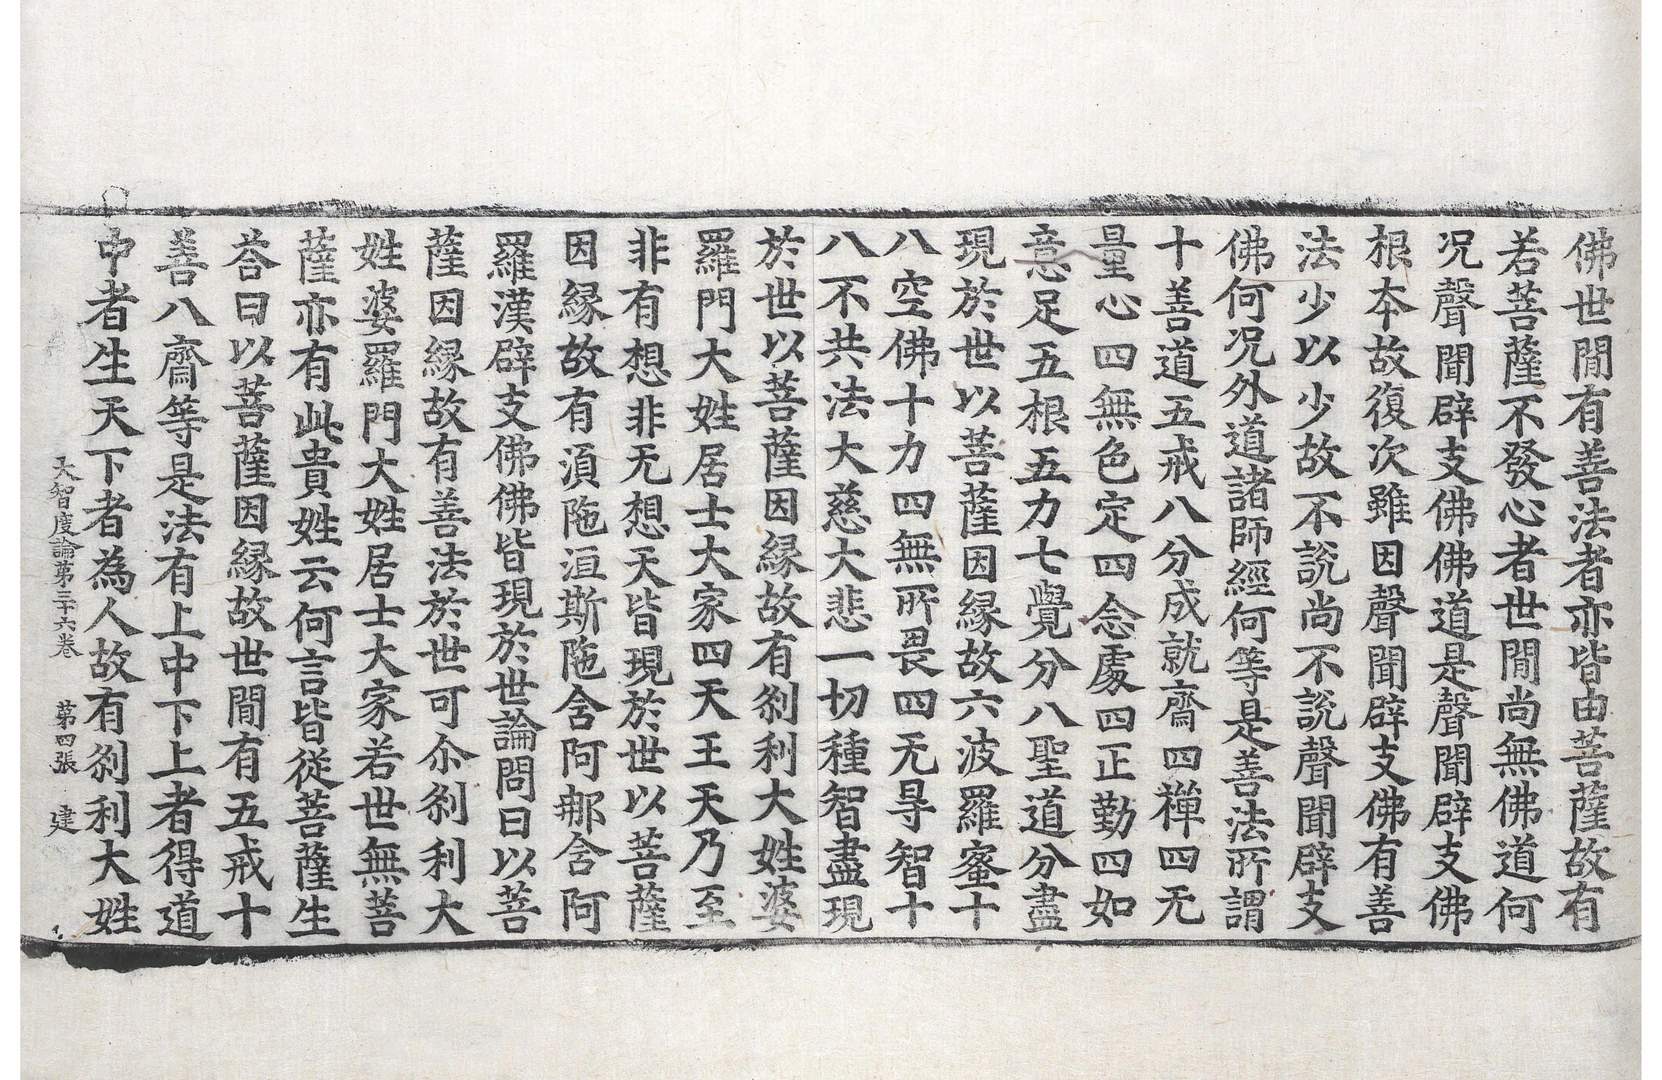 佛世間有善法者亦皆由菩薩故有
若菩薩不發心者世間尚無佛道何
况聲聞辟支佛佛道是聲聞辟支佛
根本故復次雖因聲聞辟支佛有善
法少以少故不說尚不說聲聞辟支
佛何况外道諸師經何等是善法所謂
十善道五戒八分成就齋四禪四无
量心四無色定四念處四正勤四如
意足五根五力七覺分八聖道分盡
現於世以菩薩因緣故六波羅蜜十
八空佛十力四無所畏四无㝵智十
八不共法大慈大悲一切種智盡現
於世以菩薩因緣故有剎利大姓婆
羅門大姓居士大家四天王天乃至
非有想非无想天皆現於世以菩薩
因緣故有湏陁洹斯陁含阿那含阿
羅漢辟支佛佛皆現於世論問曰以菩
薩因緣故有善法於世可尒剎利大
姓婆羅門大姓居士大家若世無菩
薩亦有此貴姓云何言皆從菩薩生
荅曰以菩薩因緣故世間有五戒十
善八齋等是法有上中下上者得道
中者生天下者為人故有剎利大姓
大智度論第三十六卷 第四張 建